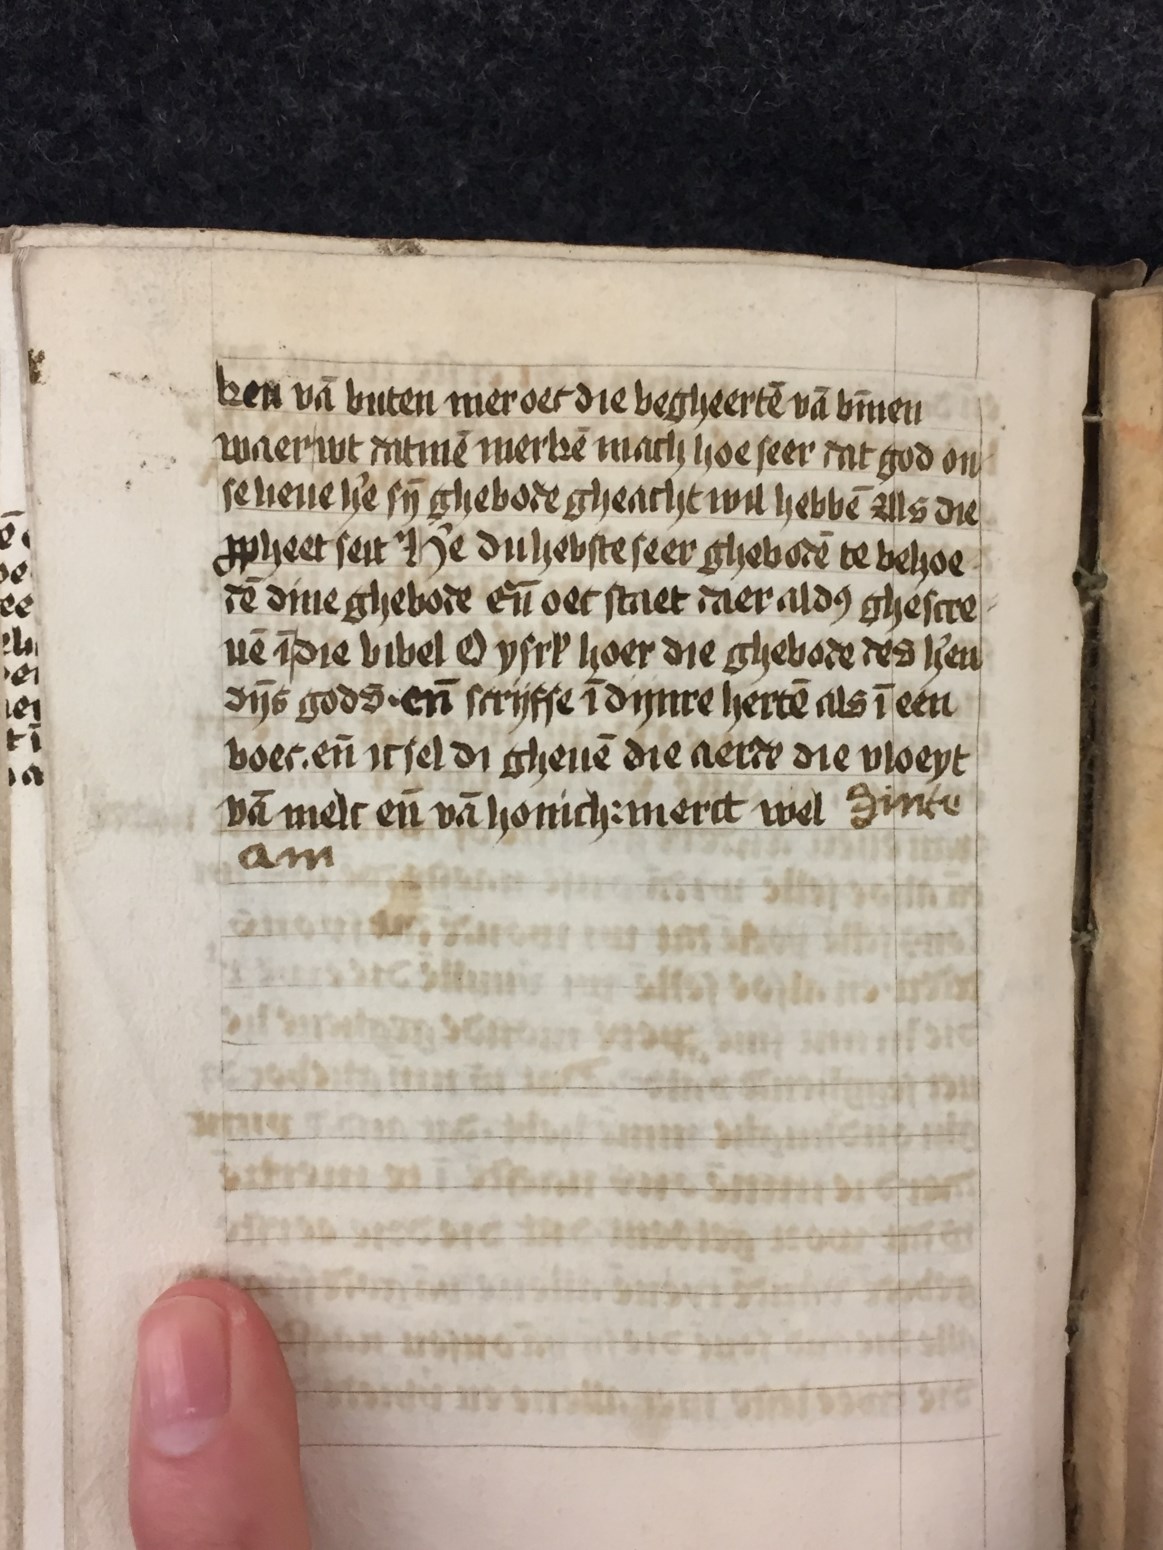 ken vā buten mer oec die begheertē vā bīnen
waer wt datmē merkē mach hoe seer dat god on
se lieue h̓e sȳ ghebode gheacht wil hebbē Als die
ꝓpheet seit H̓e du hebste seer ghebodē te behoe
dē dine ghebode En̄ oec staet daer aldꝰ ghescre
uē ī die bibel O ysrl̓ hoer die ghebode des h̓en
dijs gods · en̄ scrijffse ī dijnre hertē als ī een
boec . en̄ ic sel di gheuē die aerde die vloeyt
vā melc en̄ vā honich : merct wel
am